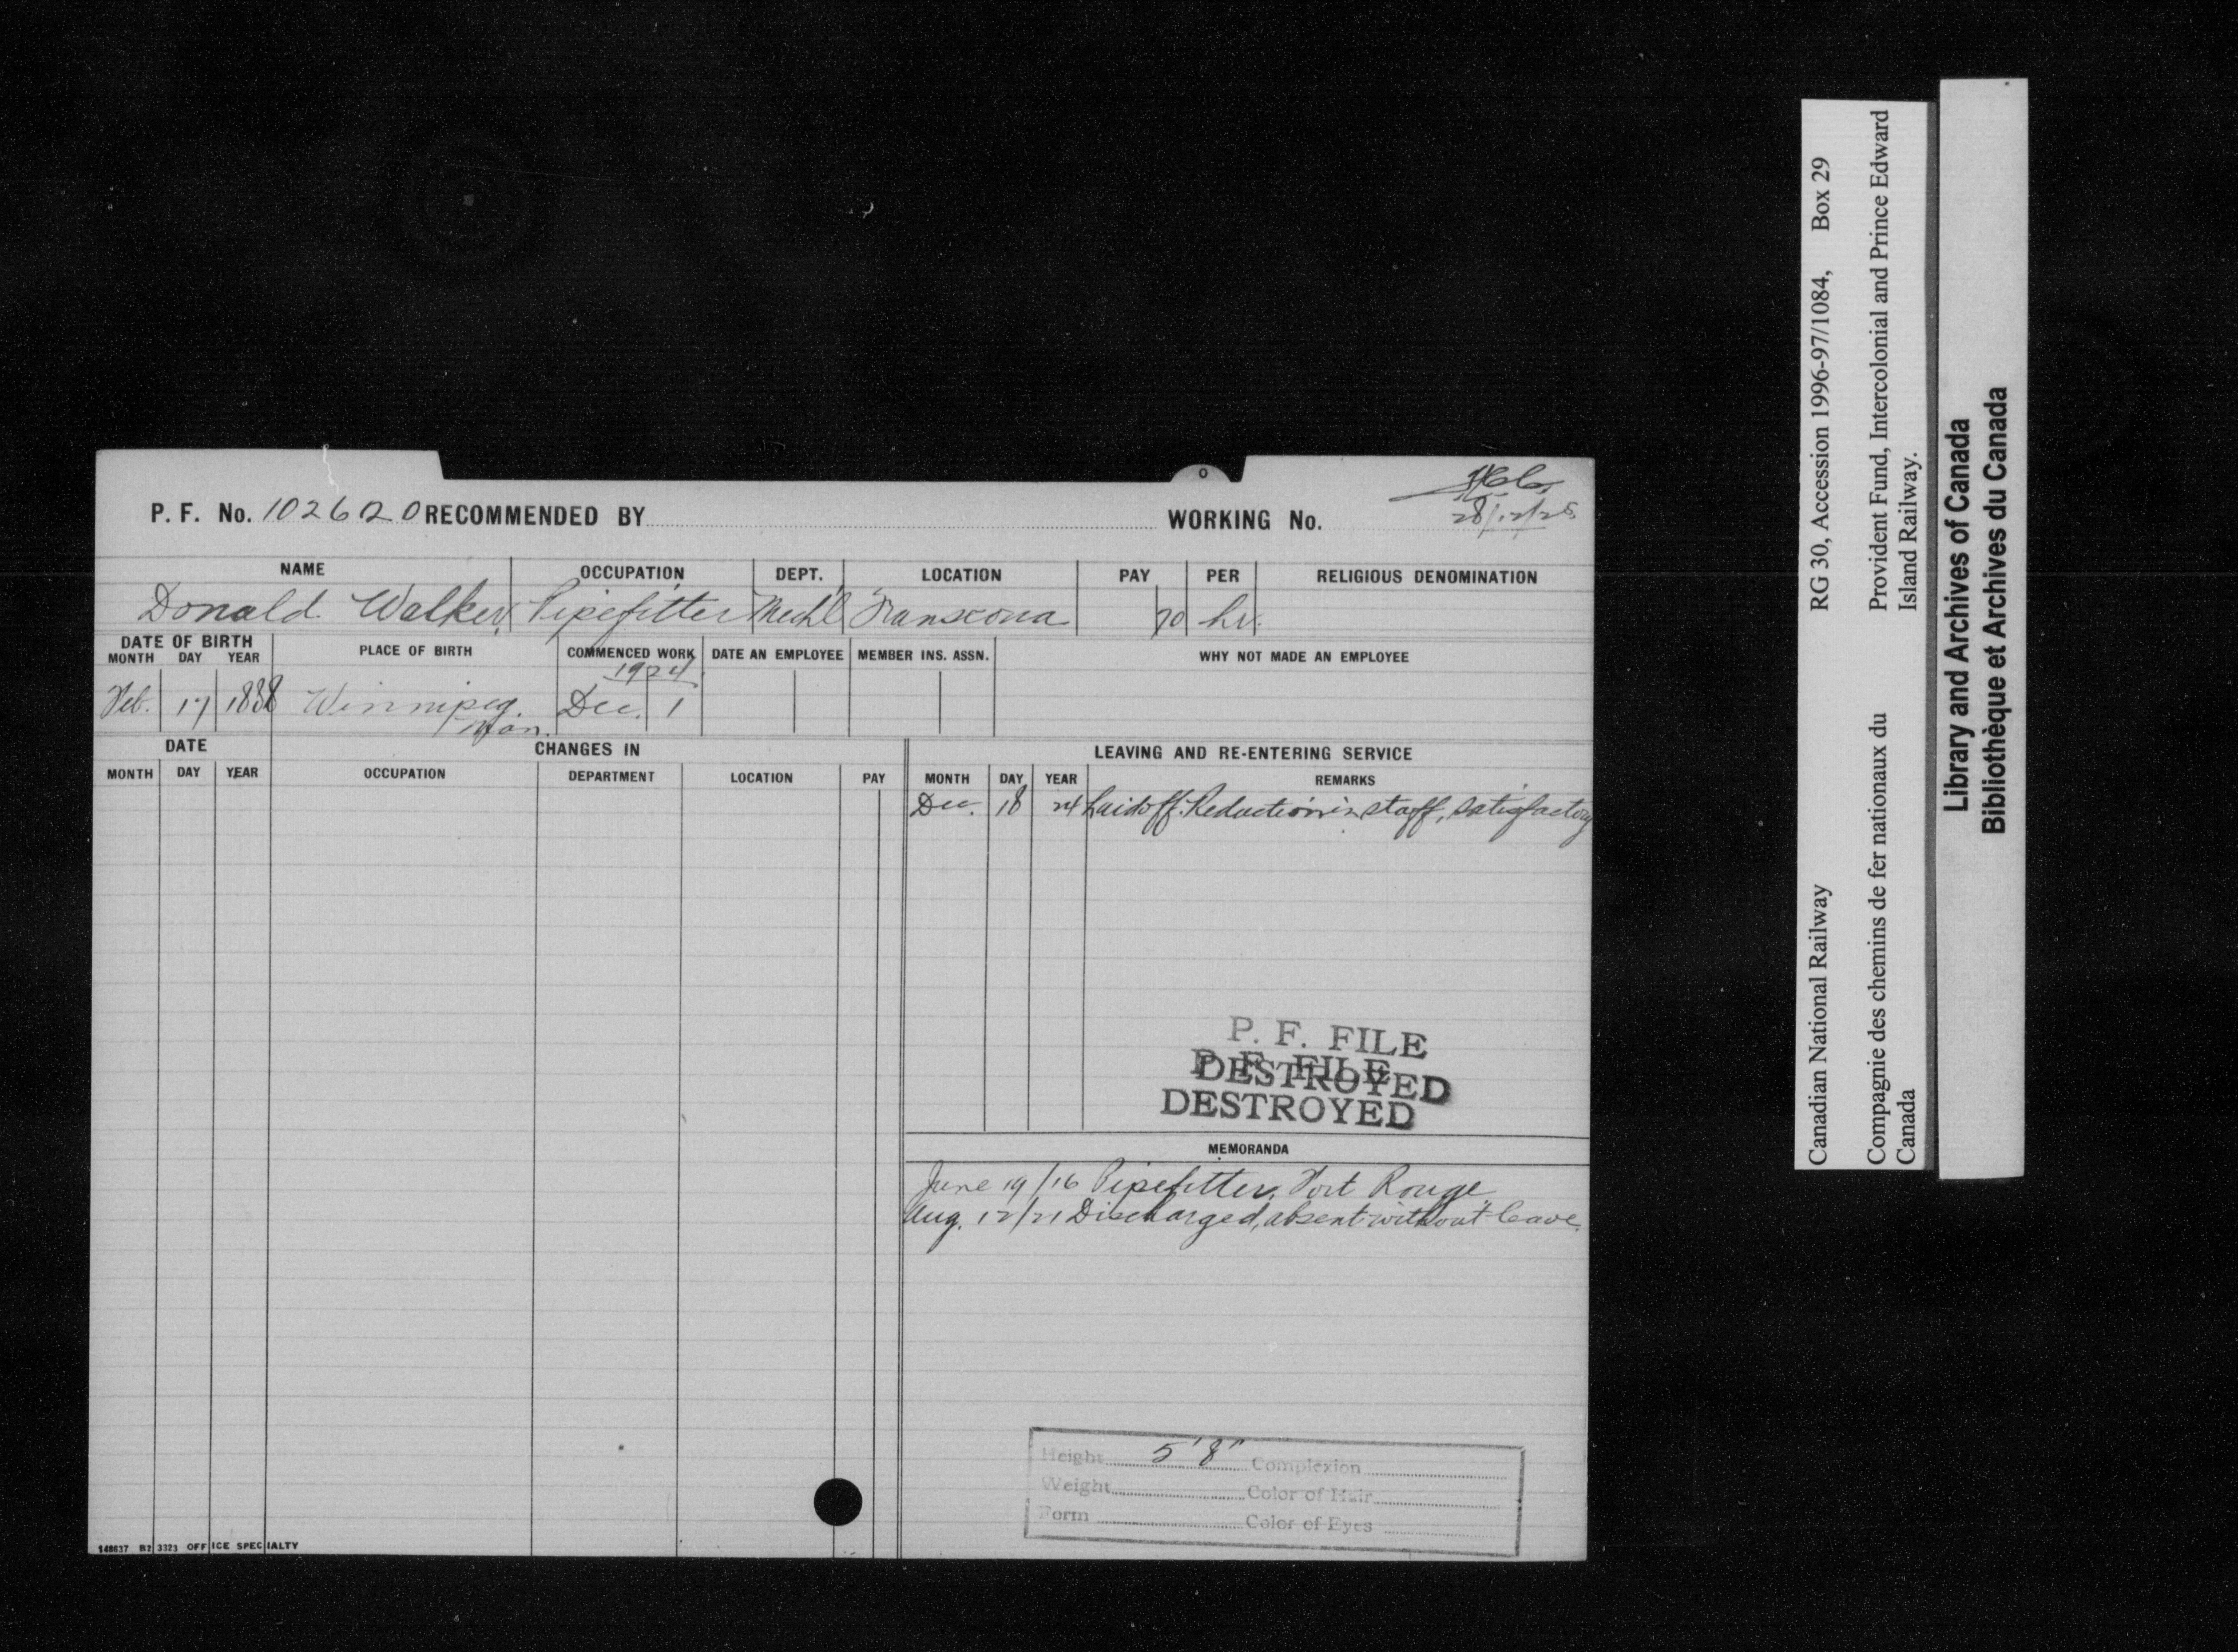 P. F. No. 102620 RECOMMENDED BY WORKING No.
28/12/25
NAME OCCUPATION DEPT. LOCATION PAY PER RELIGIOUS DENOMINATION
Donald Walker Pipefitter Mechl Transcona 70 hr.
DATE OF BIRTH PLACE OF BIRTH COMMENCED WORK DATE AN EMPLOYEE MEMBER INS. ASSN. WHY NOT MADE AN EMPLOYEE
MONTH DAY YEAR
1924
Feb. 17 1888 Winnipeg. Dec. 1
Man.
DATE CHANGES IN LEAVING AND RE-ENTERING SERVICE
MONTH DAY YEAR OCCUPATION DEPARTMENT LOCATION PAY MONTH DAY YEAR REMARKS
Dec. 18 24 Laid off. Reduction in staff, satisfactory
P. F. FILE
DESTROYED
P. F. FILE
DESTROYED
MEMORANDA
June 19/16 Pipefitter, Fort Rouge
Aug. 12/21 Discharged, absent without leave.
Height 5'8" Complexion
Weight Color of Hair
Form Color of Eyes
148637 B2 3323 OFFICE SPECIALTY
Canadian National Railway RG 30, Accession 1996-97/1084, Box 29
Compagnie des chemins de fer nationaux du Provident Fund, Intercolonial and Prince Edward
Canada Island Railway.
Library and Archives of Canada
Bibliothèque et Archives du Canada